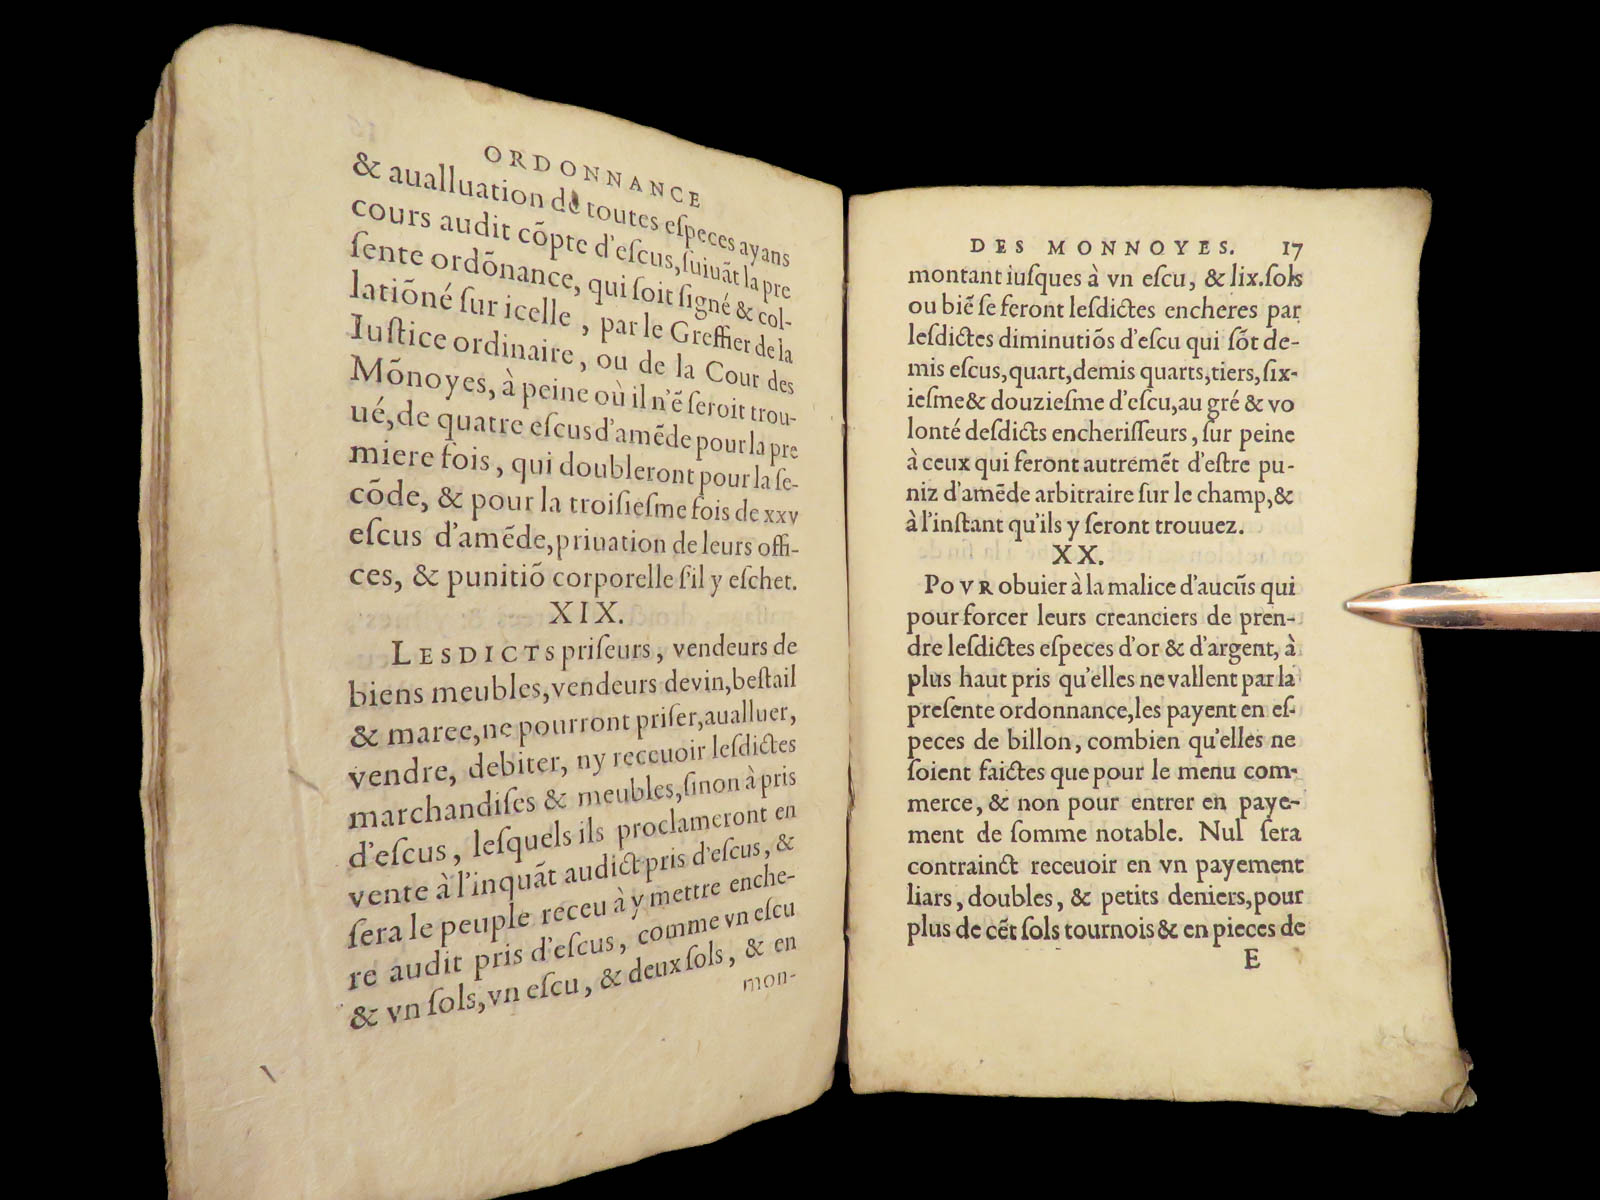 ORDONNANCE
& aualluation de toutes eſpeces ayans
cours audit cõpte d'eſcus, ſuiuãt la pre
ſente ordõnance, qui ſoit ſigné & col-
lationé ſur icelle, par le Greffier de la
Iuſtice ordinaire, ou de la Cour des
Mõnoyes, à peine où il n'ẽ ſeroit trou-
ué, de quatre eſcus d'amẽde pour la pre
miere fois, qui doubleront pour la ſe-
cõde, & pour la troiſieſme fois de xxv
eſcus d'amẽde, priuation de leurs offi-
ces, & punitiõ corporelle ſ'il y eſchet.
XIX.
LESDICTS priſeurs, vendeurs de
biens meubles, vendeurs de vin, beſtail
& maree, ne pourront priſer, aualluer,
vendre, debiter, ny receuoir leſdictes
marchandiſes & meubles, ſinon à pris
d'eſcus, leſquels ils proclameront en
vente à l'inquãt audict pris d'eſcus, &
ſera le peuple receu à y mettre enche-
re audit pris d'eſcus, comme vn eſcu
& vn ſols, vn eſcu, & deux ſols, & en
mon-
DES MONNOYES. 17
montant iuſques à vn eſcu, & lix. ſols
ou biẽ ſe feront leſdictes encheres par
leſdictes diminutiõs d'eſcu qui ſõt de-
mis eſcus, quart, demis quarts, tiers, ſix-
ieſme & douzieſme d'eſcu, au gré & vo
lonté deſdicts encheriſſeurs, ſur peine
à ceux qui feront autremẽt d'eſtre pu-
niz d'amẽde arbitraire ſur le champ, &
à l'inſtant qu'ils y ſeront trouuez.
XX.
POVR obuier à la malice d'aucũs qui
pour forcer leurs creanciers de pren-
dre leſdictes eſpeces d'or & d'argent, à
plus haut pris qu'elles ne vallent par la
preſente ordonnance, les payent en eſ-
peces de billon, combien qu'elles ne
ſoient faictes que pour le menu com-
merce, & non pour entrer en paye-
ment de ſomme notable. Nul ſera
contrainct receuoir en vn payement
liars, doubles, & petits deniers, pour
plus de cẽt ſols tournois & en pieces de
E